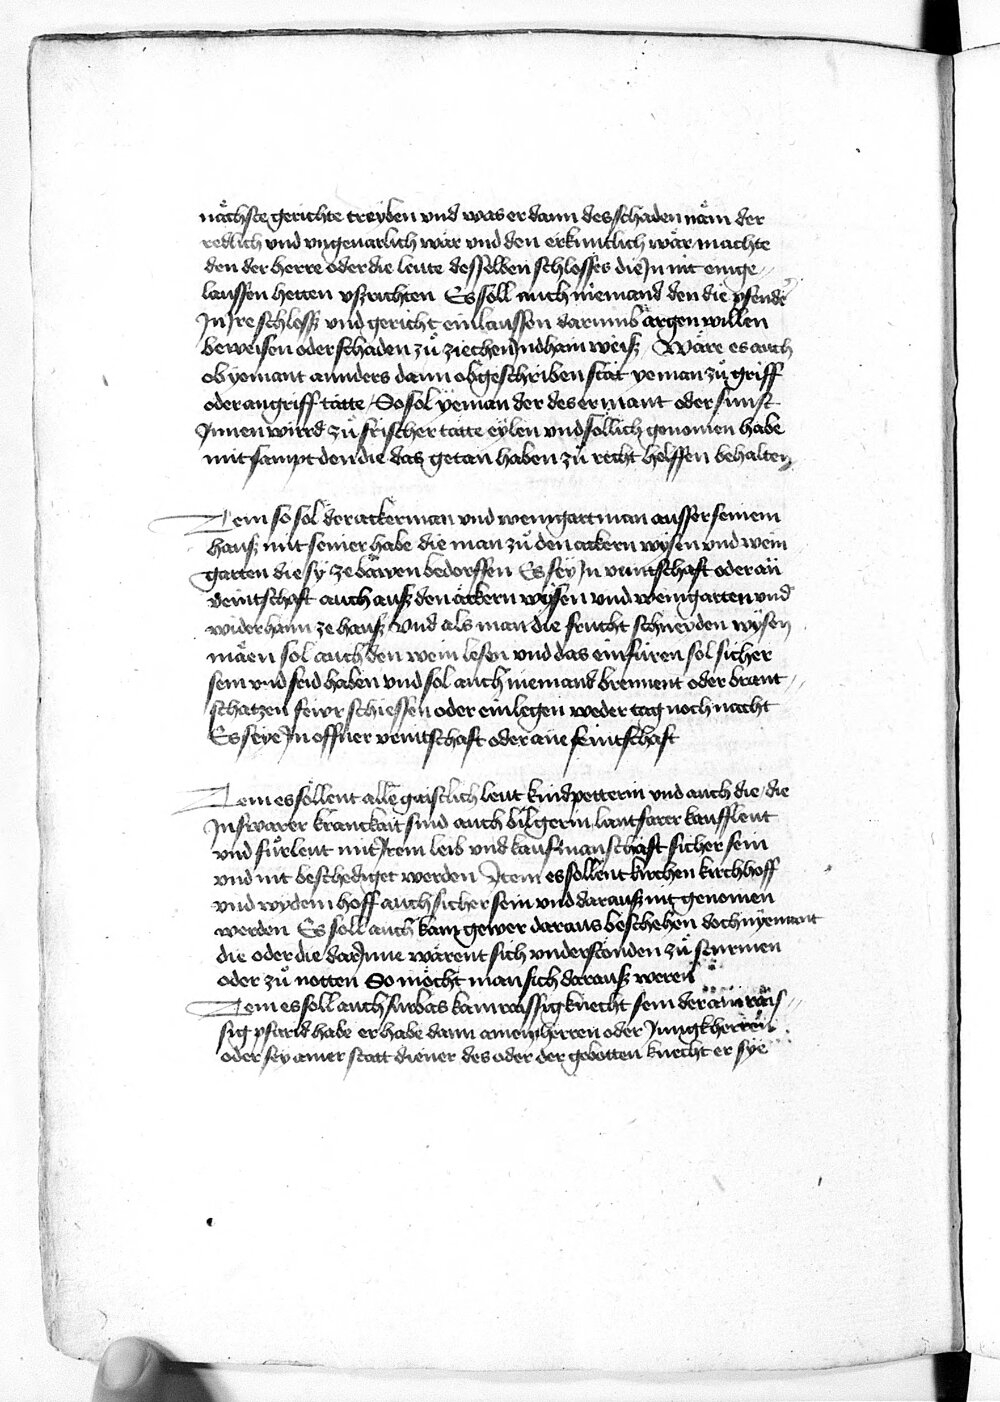 nächste gerichte treyben vnd was er dann des schaden näm der
redlich vnd vngeuarlich wär vnd den erkuntlich wär machte
den der herre oder die leute desselben schlosses die In nit einge-
laussen hetten vszrichten Es soll auch niemand den die pfender
In Ire schlessz vnd gericht einlaussen darumb ärgen willen
beweisen oder schaden zů ziechen Indhain weisz Wäre es auch
ob yemant annders dann obgeschriben stät yeman zů griff
oder angriff tätte So sol yeman der des ermant oder sunst
Innen wurd zů frischer tätte eylen vnd sollich genomen habe
mit sampt den die das getan haben zů recht helffen behalten
Item so sol der ackerman vnd weingartman ausser seinem
hausz mit seiner habe die man zů den ackern wysen vnd wein
garten die sy ze båwen bedorffen Es sey In veintschaft oder an
veintschaft auch ausz den äckern wysen vnd weingarten vnd
widerhaim ze hausz Vnd als man die frucht schneyden wysen
mäen sol auch den wein lesen vnd das einfüren sol sicher
sein vnd frid haben vnd sol auch niemand brennent oder brant-
schatzen fewr schiessen oder einlegen weder tag noch nacht
Es seye In offner veintschaft oder ane feintschaft
Item es söllent alle gaistlich leut kindpetterin vnd auch die die
In swarer kranckait sind auch bilgerin lantfarer kaufflent
vnd fůrleut mit Irem leib vnd kaufmanschaft sicher sein
vnd nit beschediget werden Item es sollent kirchen kirchhoff
vnd wydem hoff auch sicher sein vnd darausz nit genomen
werden Es soll auch kain gewer daraus beschehen doch nyemant
die oder die darInne wärent sich vnderstonden zů sturmen
oder zů notten So möcht man sich darausz weren
Item es soll auch furbas kain raissig knecht sein der ain rais-
sig pfärid habe er habe dann ainen herren oder Jungkherren
oder sey ainer statt diener des oder der gebotten knecht er sye